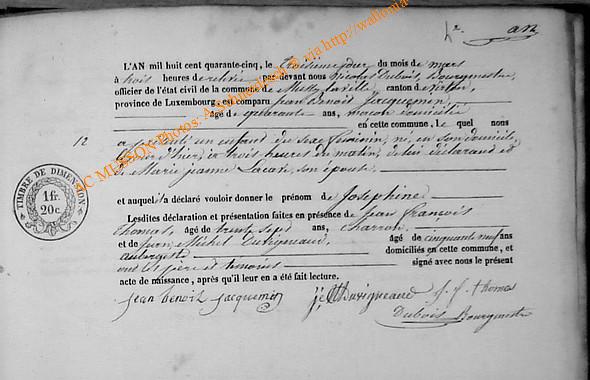 N°. an
L'AN mil huit cent quarante-cinq, le troisième jour du mois de mars
à trois heures de relevée, par devant nous Nicolas Dubois, Bourgmestre,
officier de l'état civil de la commune de Mussy la ville canton de Virton,
province de Luxembourg, est comparu Jean Benoit Jacquemin,
âgé de quarante ans, maçon domicilié
en cette commune, le quel nous
12 a présenté un enfant du sexe féminin, né en son domicile,
jour d'hier, à trois heures du matin, de lui déclarant et
de Marie Jeanne Lacave, son épouse,
et auquel il a déclaré vouloir donner le prénom de Joséphine
Lesdites déclaration et présentation faites en présence de Jean François
Thomas, âgé de trente sept ans, charron,
et de Jean Michel Duvigneaud, âgé de cinquante neuf ans
aubergiste domiciliés en cette commune, et
ont les père et témoins signé avec nous le présent
acte de naissance, après qu'il leur en a été fait lecture.
Jean Benoit Jacquemin J. M. Duvigneaud J. f. thomas
Dubois Bourgmestre
TIMBRE DE DIMENSION
1 fr.
20 c.
MUSSON Photos: A. Schmit via http://wallonia